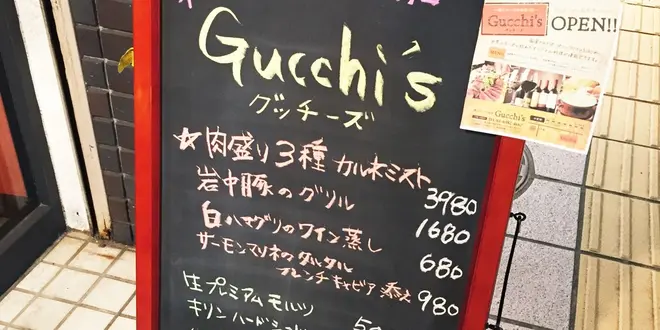 Gucchi's
グッチーズ
☆肉盛り3種 カルネミスト 3980
岩中豚のグリル 1680
白ハマグリのワイン蒸し 680
サーモンマリネのタルタル
フレンチキャビア添え 980
生プレミアムモルツ
キリンハード
Gucchi's
グッチーズ
OPEN!!
Gucchi's